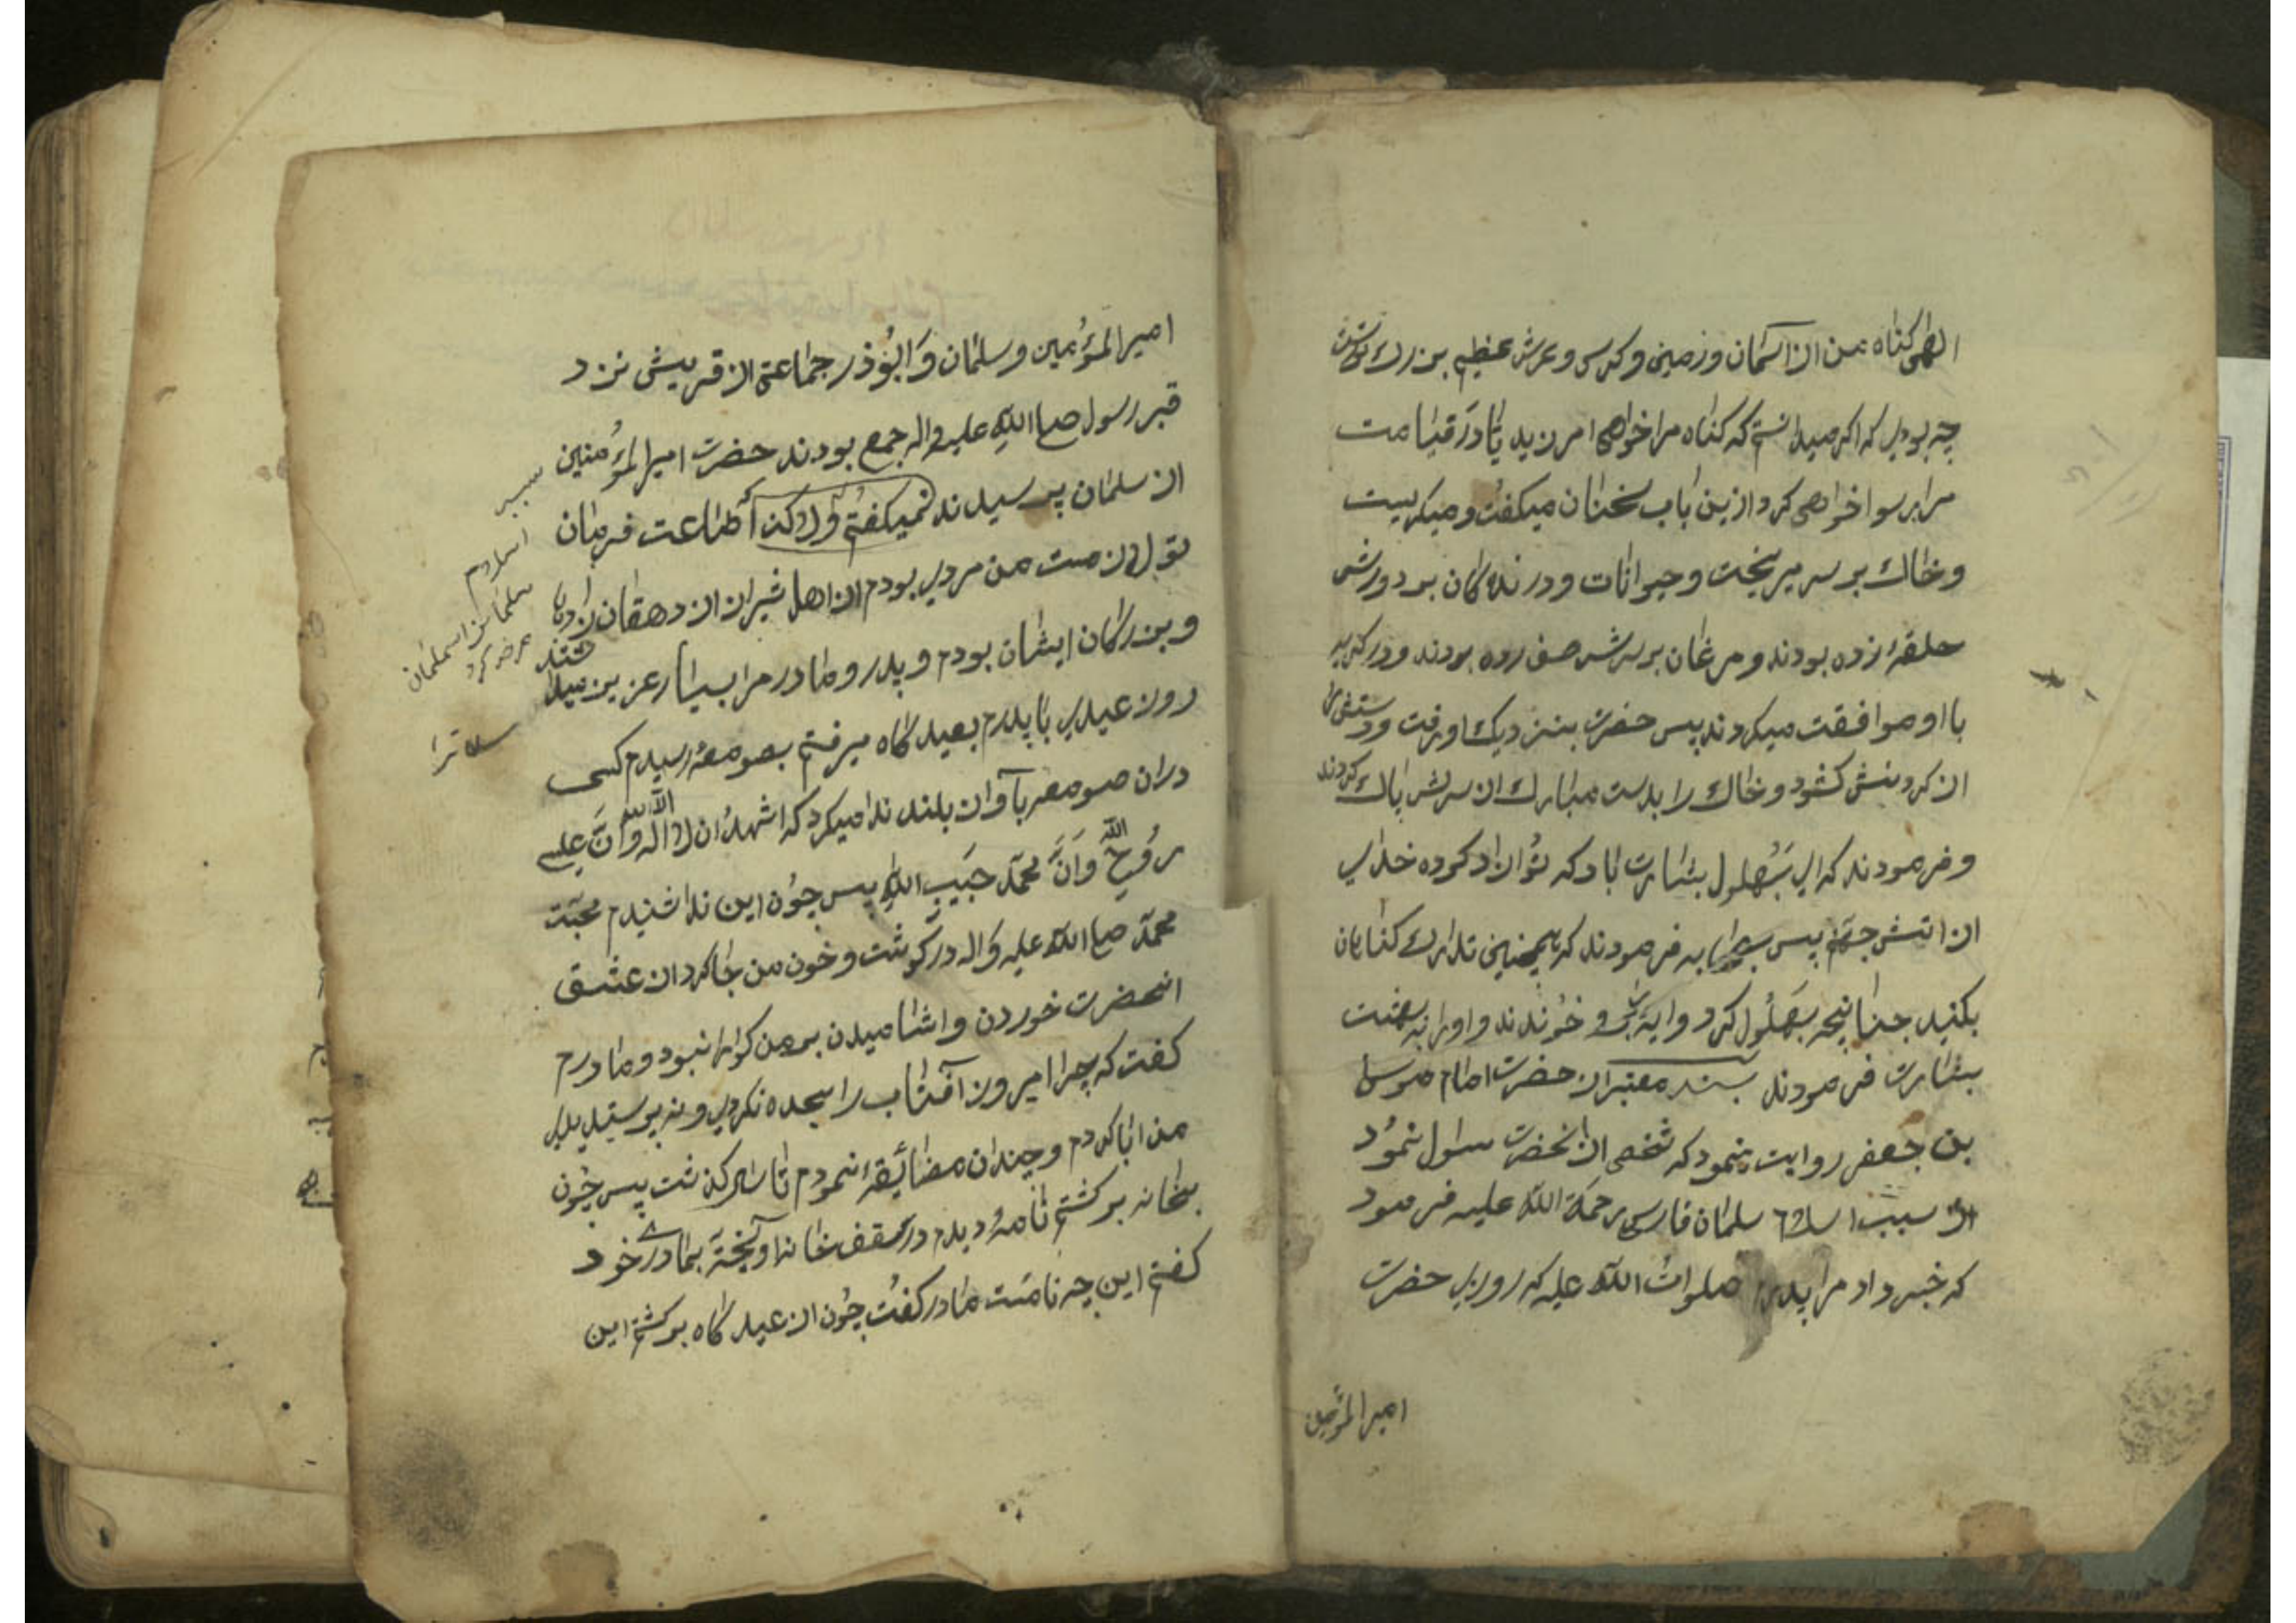 الهی کناه من از آسمان وزمین وکرسی وعرش عظیم بزرك
چه بودی که اکر میدانستم که کناه مرا خواهی امرزید یا در قیامت
مرا برسوا خواهی کرد ازین باب سخنان میکفت ومیکریست
وخاك بر سر میریخت وحیوانات ودرندکان بر دورش
حلقه زده بودند ومرغان بر سرش صف زده بودند ودر کریه
با او موافقت میکردند پس حضرت بنزدیك او رفت ودستش را
از کردنش کشود وخاك را بدست مبارك از سرش پاك کردند
وفرمودند که ای بهلول بشارت باد که تو ازاد کرده خدای
از اتش جهنم پس بصحابه فرمودند که همچنین تدارك کناهان
بکنید چنانچه بهلول کرد وایة را خوندند واورا به بهشت
بشارت فرمودند بسند معتبر از حضرت امام موسی
بن جعفر روایت نمود که شخصی از انحضرت سوال نمود
از سبب اسلام سلمان فارسی رحمة الله علیه فرمود
که خبر داد مرا پدرم صلوات الله علیه که روزی حضرت
امیر المؤمنین
امیر المؤمین وسلمان وابوذر جماعتی از قریش نزد
قبر رسول صلی الله علیه واله جمع بودند حضرت امیر المؤمنین
از سلمان پرسیدند نمیکفتم که اطاعت فرمان
تو لازمست من مردی بودم از اهل شیراز از دهقان زادها
وبزرکان ایشان بودم وپدر ومادر مرا بسیار عزیز میداشتند
روز عیدی با پدرم بعید کاه میرفتم بصومعه رسیدم کسی
دران صومعه بآواز بلند ندا میکرد که اشهد ان لا اله الا الله وان عیسی
روح الله وان محمد حبیب الله پس چون این ندا شنیدم محبت
محمد صلی الله علیه واله در کوشت وخون من جا کرد از عشق
انحضرت خوردن واشامیدن بر من کوارا نبود ومادرم
کفت که چرا امروز آفتاب را سجده نکردی ونپرستیدی
من ابا کردم وچندان مضائقه نمودم تا کذشت پس چون
بخانه برکشتم نامه دیدم در سقف خانه آویخته بمادر خود
کفتم این چه نامست مادر کفت چون از عید کاه برکشتم این
سبب
اسلام
سلمان
عرض کرد